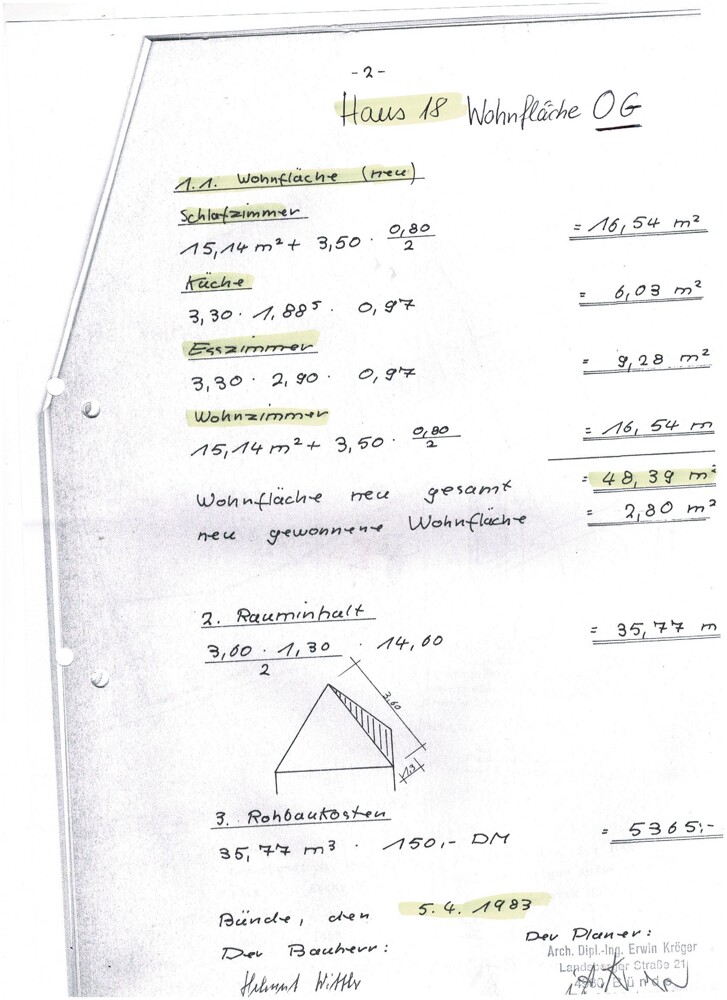 - 2 -
Haus 18 Wohnfläche OG
1.1. Wohnfläche (neu)
Schlafzimmer
15,14 m² + 3,50 · 0,80/2 = 16,54 m²
Küche
3,30 · 1,88⁵ · 0,97 = 6,03 m²
Esszimmer
3,30 · 2,90 · 0,97 = 9,28 m²
Wohnzimmer
15,14 m² + 3,50 · 0,80/2 = 16,54 m
Wohnfläche neu gesamt = 48,39 m²
neu gewonnene Wohnfläche = 2,80 m²
2. Rauminhalt
3,60 · 1,30/2 · 14,60 = 35,77 m
3,60
1,3
3. Rohbaukosten
35,77 m³ · 150,- DM = 5365,-
Bünde, den 5.4.1983
Der Bauherr: Der Planer:
Arch. Dipl.-Ing. Erwin Kröger
Straße 21
4980 Bünde
Helmut